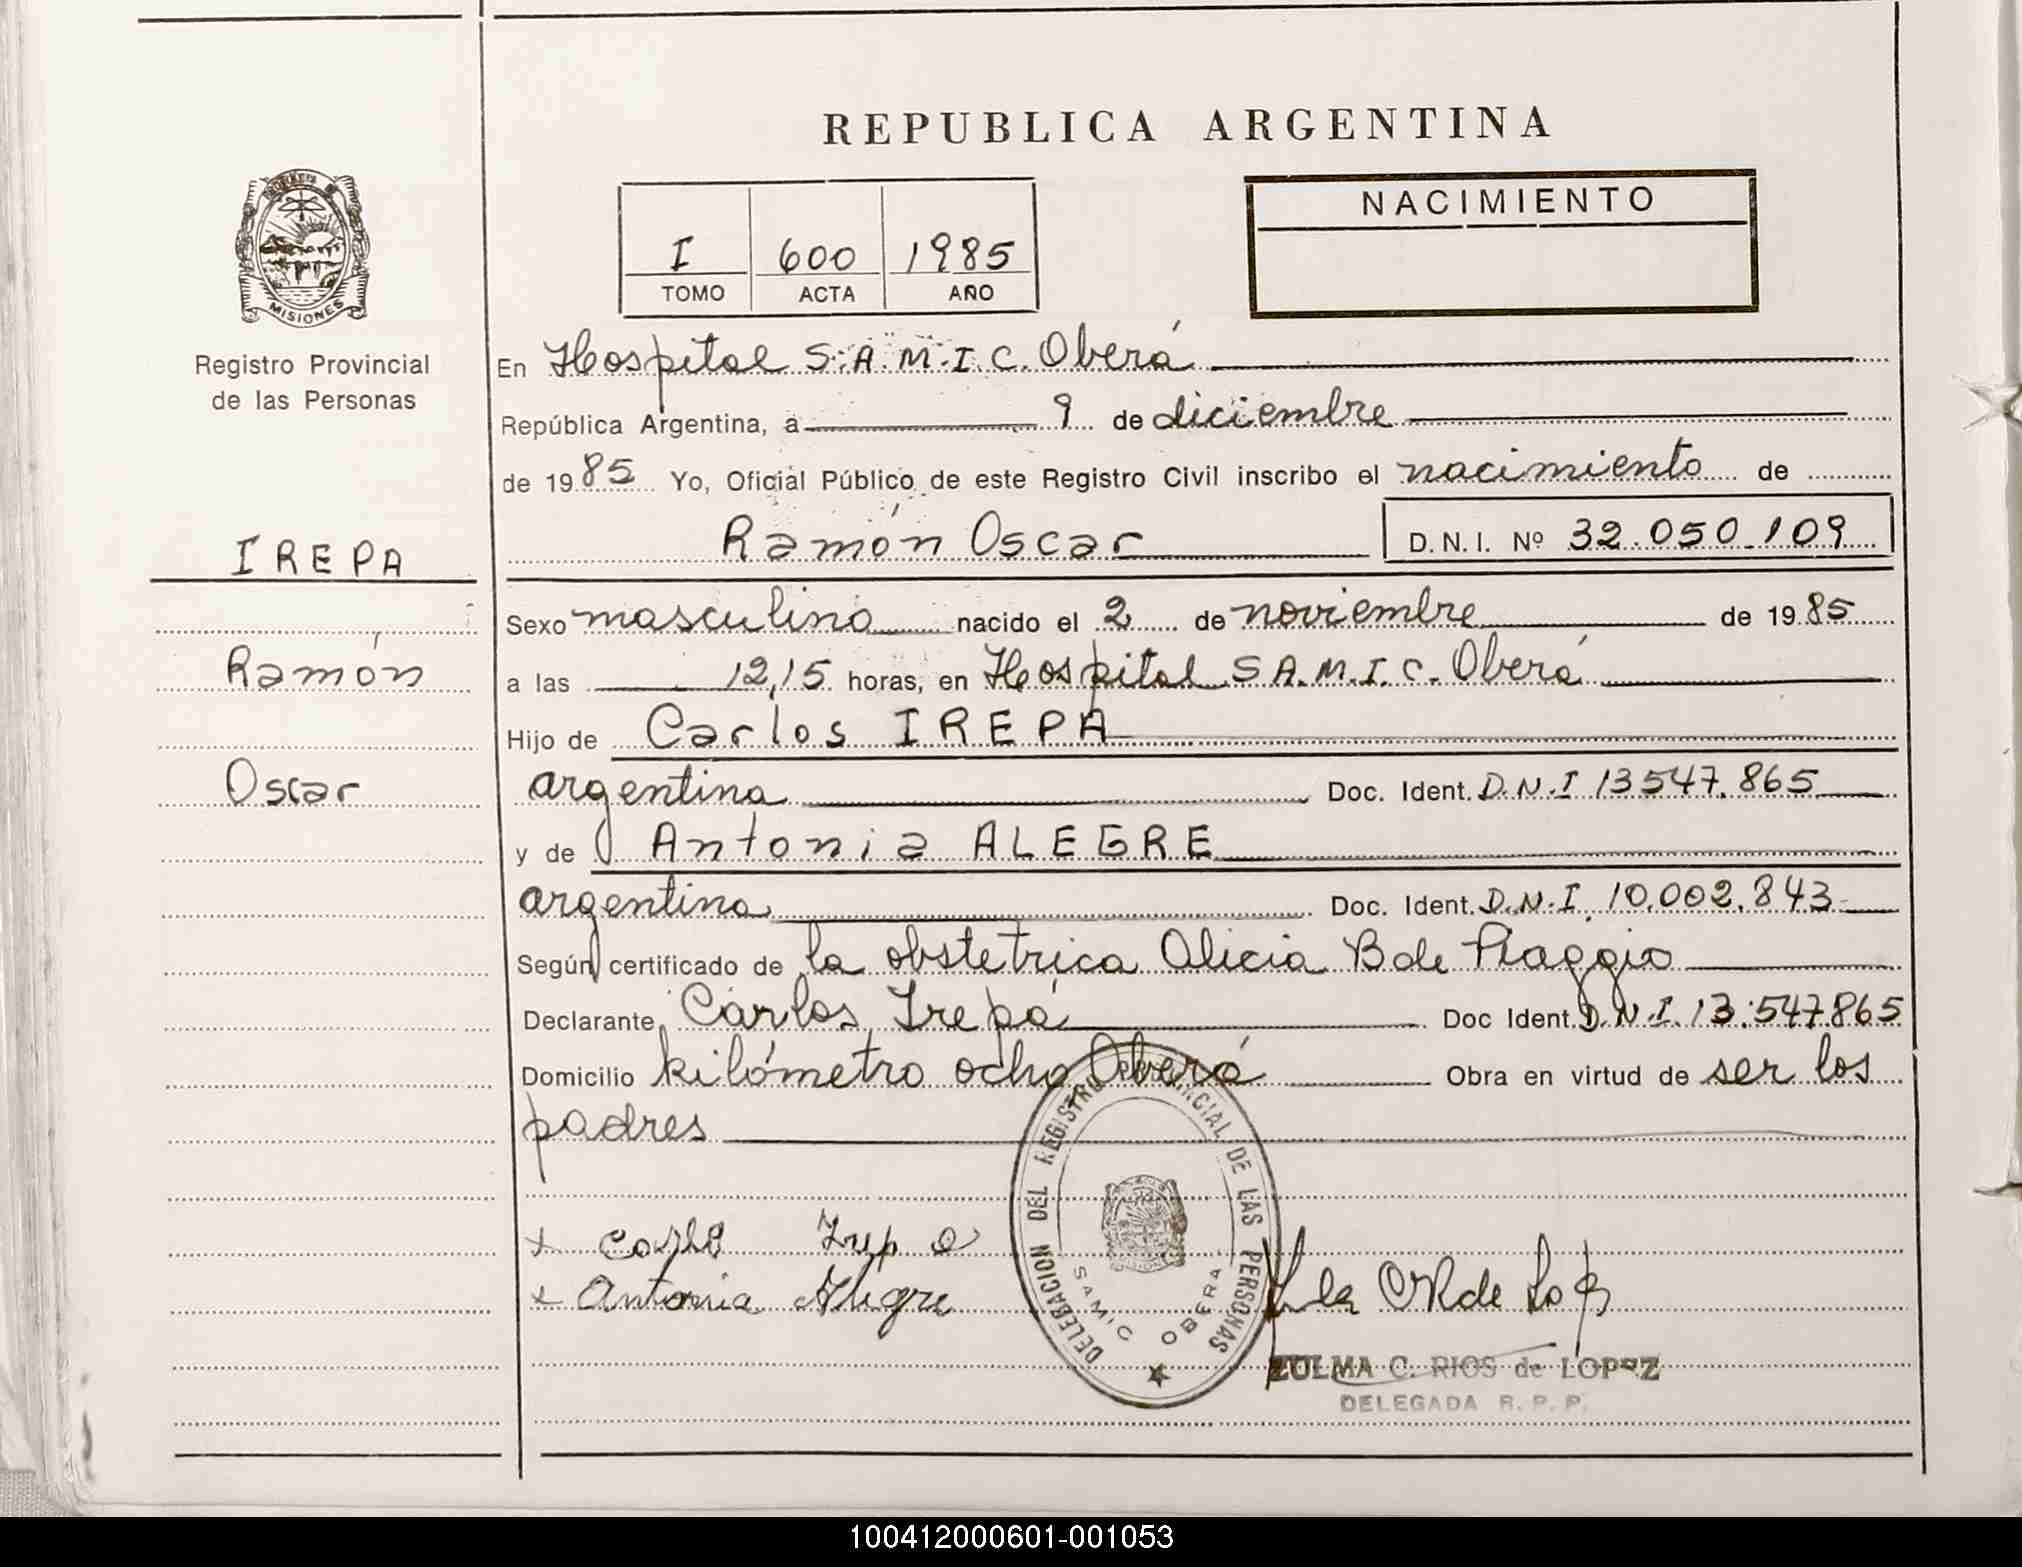 REPUBLICA ARGENTINA
NACIMIENTO
I 600 1985
TOMO ACTA AÑO
MISIONES
Registro Provincial
de las Personas
En Hospital S.A.M.I.C. Oberá
República Argentina, a 9 de diciembre
de 1985 Yo, Oficial Público de este Registro Civil inscribo el nacimiento de
Ramón Oscar D.N.I. Nº 32.050.109
IREPA
Ramón
Oscar
Sexo masculino nacido el 2 de noviembre de 1985
a las 12,15 horas, en Hospital S.A.M.I.C. Oberá
Hijo de Carlos IREPA
argentina Doc. Ident. D.N.I 13547.865
y de Antonia ALEGRE
argentina Doc. Ident. D.N.I. 10.002.843
Según certificado de la obstetrica Alicia B de Piaggio
Declarante Carlos Irepa Doc Ident. D.N.I. 13.547.865
Domicilio kilómetro ocho Oberá Obra en virtud de ser los
padres
DELEGACION DEL REGISTRO PROVINCIAL DE LAS PERSONAS
SAMIC OBERA
Antonia Alegre
ZULMA C. RIOS de LOPEZ
DELEGADA R. P. P.
100412000601-001053